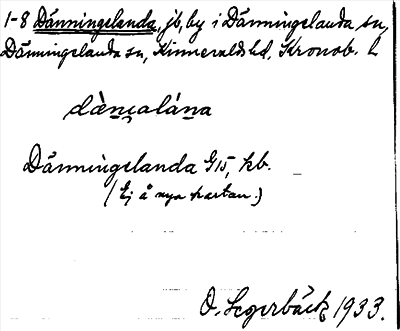 1-8 Dänningelanda, jb, by i Dänningelanda sn,
Dänningelanda sn, Kinnevalds hd, Kronob. l
dànꭍalána
Dänningelanda G15, kb.
(Ej å nya kartan.)
O. Segerbäck 1933.